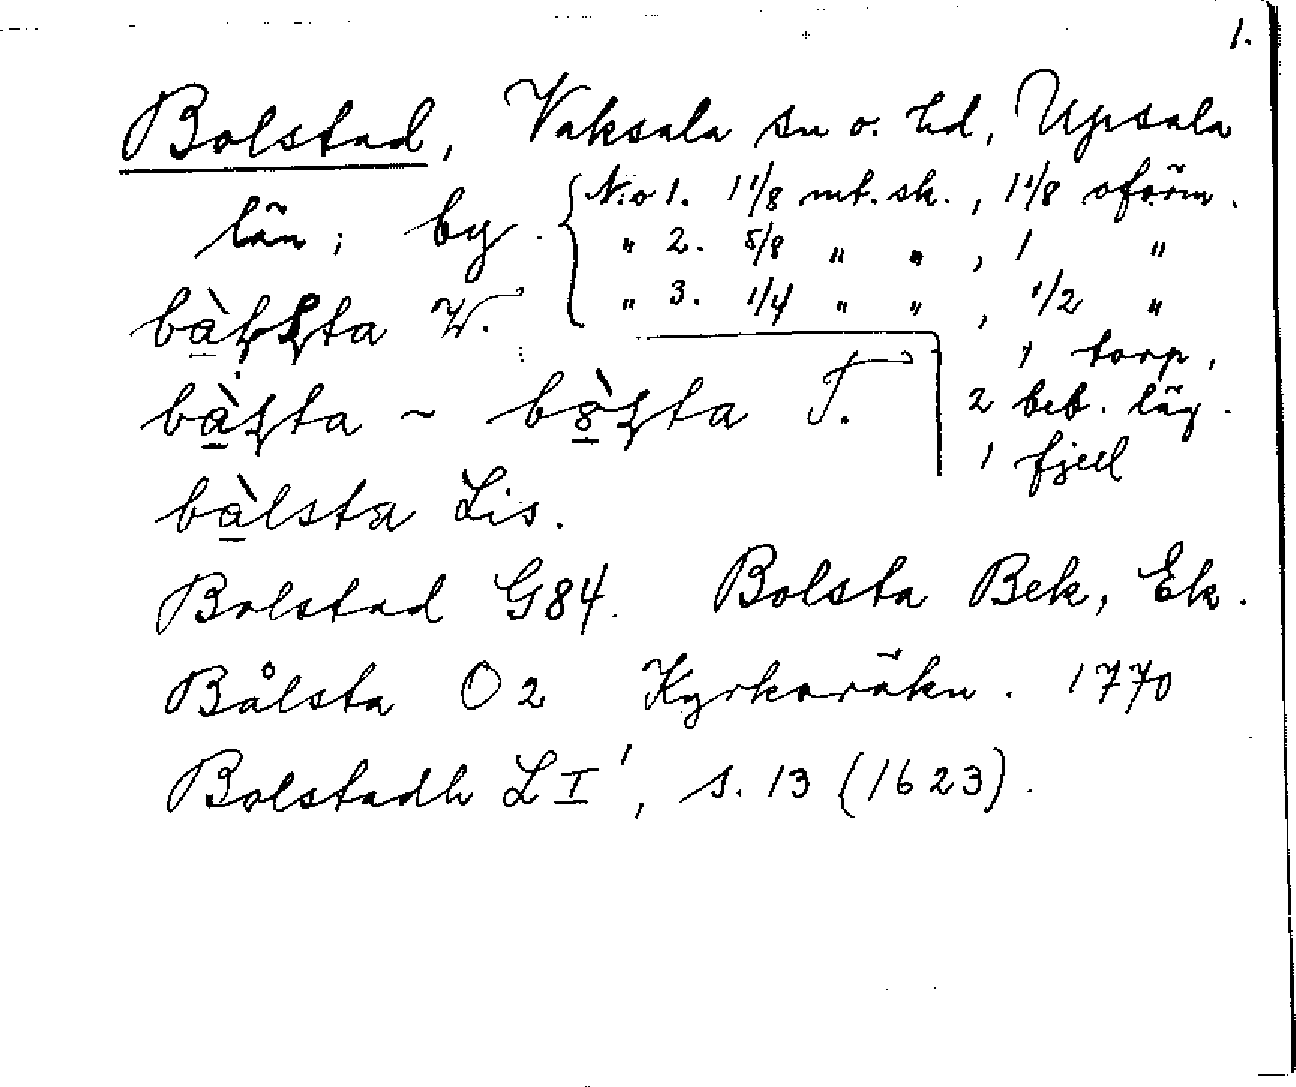 1.
Bolstad, Vaksala sn o. hd, Upsala
län; by. { N:o 1. 1 1/8 mt. sk., 1 1/8 oförm.
" 2. 5/8 " " , 1 "
" 3. 1/4 " " , 1/2 "
V.
1 torp,
~ T.
2 beb. läg.
1 fjell
bàlsta Lis.
Bolstad G84. Bolsta Bek, Ek.
Bålsta O2 Kyrkoräkn. 1770
Bolstadh LI', s. 13 (1623).